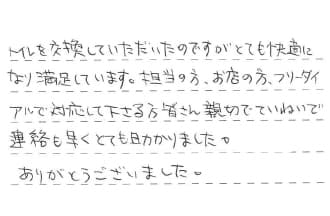 トイレを交換していただいたのですがとても快適に
なり満足しています。担当の方、お店の方、フリーダイ
アルで対応して下さる方皆さん親切でていねいで
連絡も早くとても助かりました。
ありがとうございました。